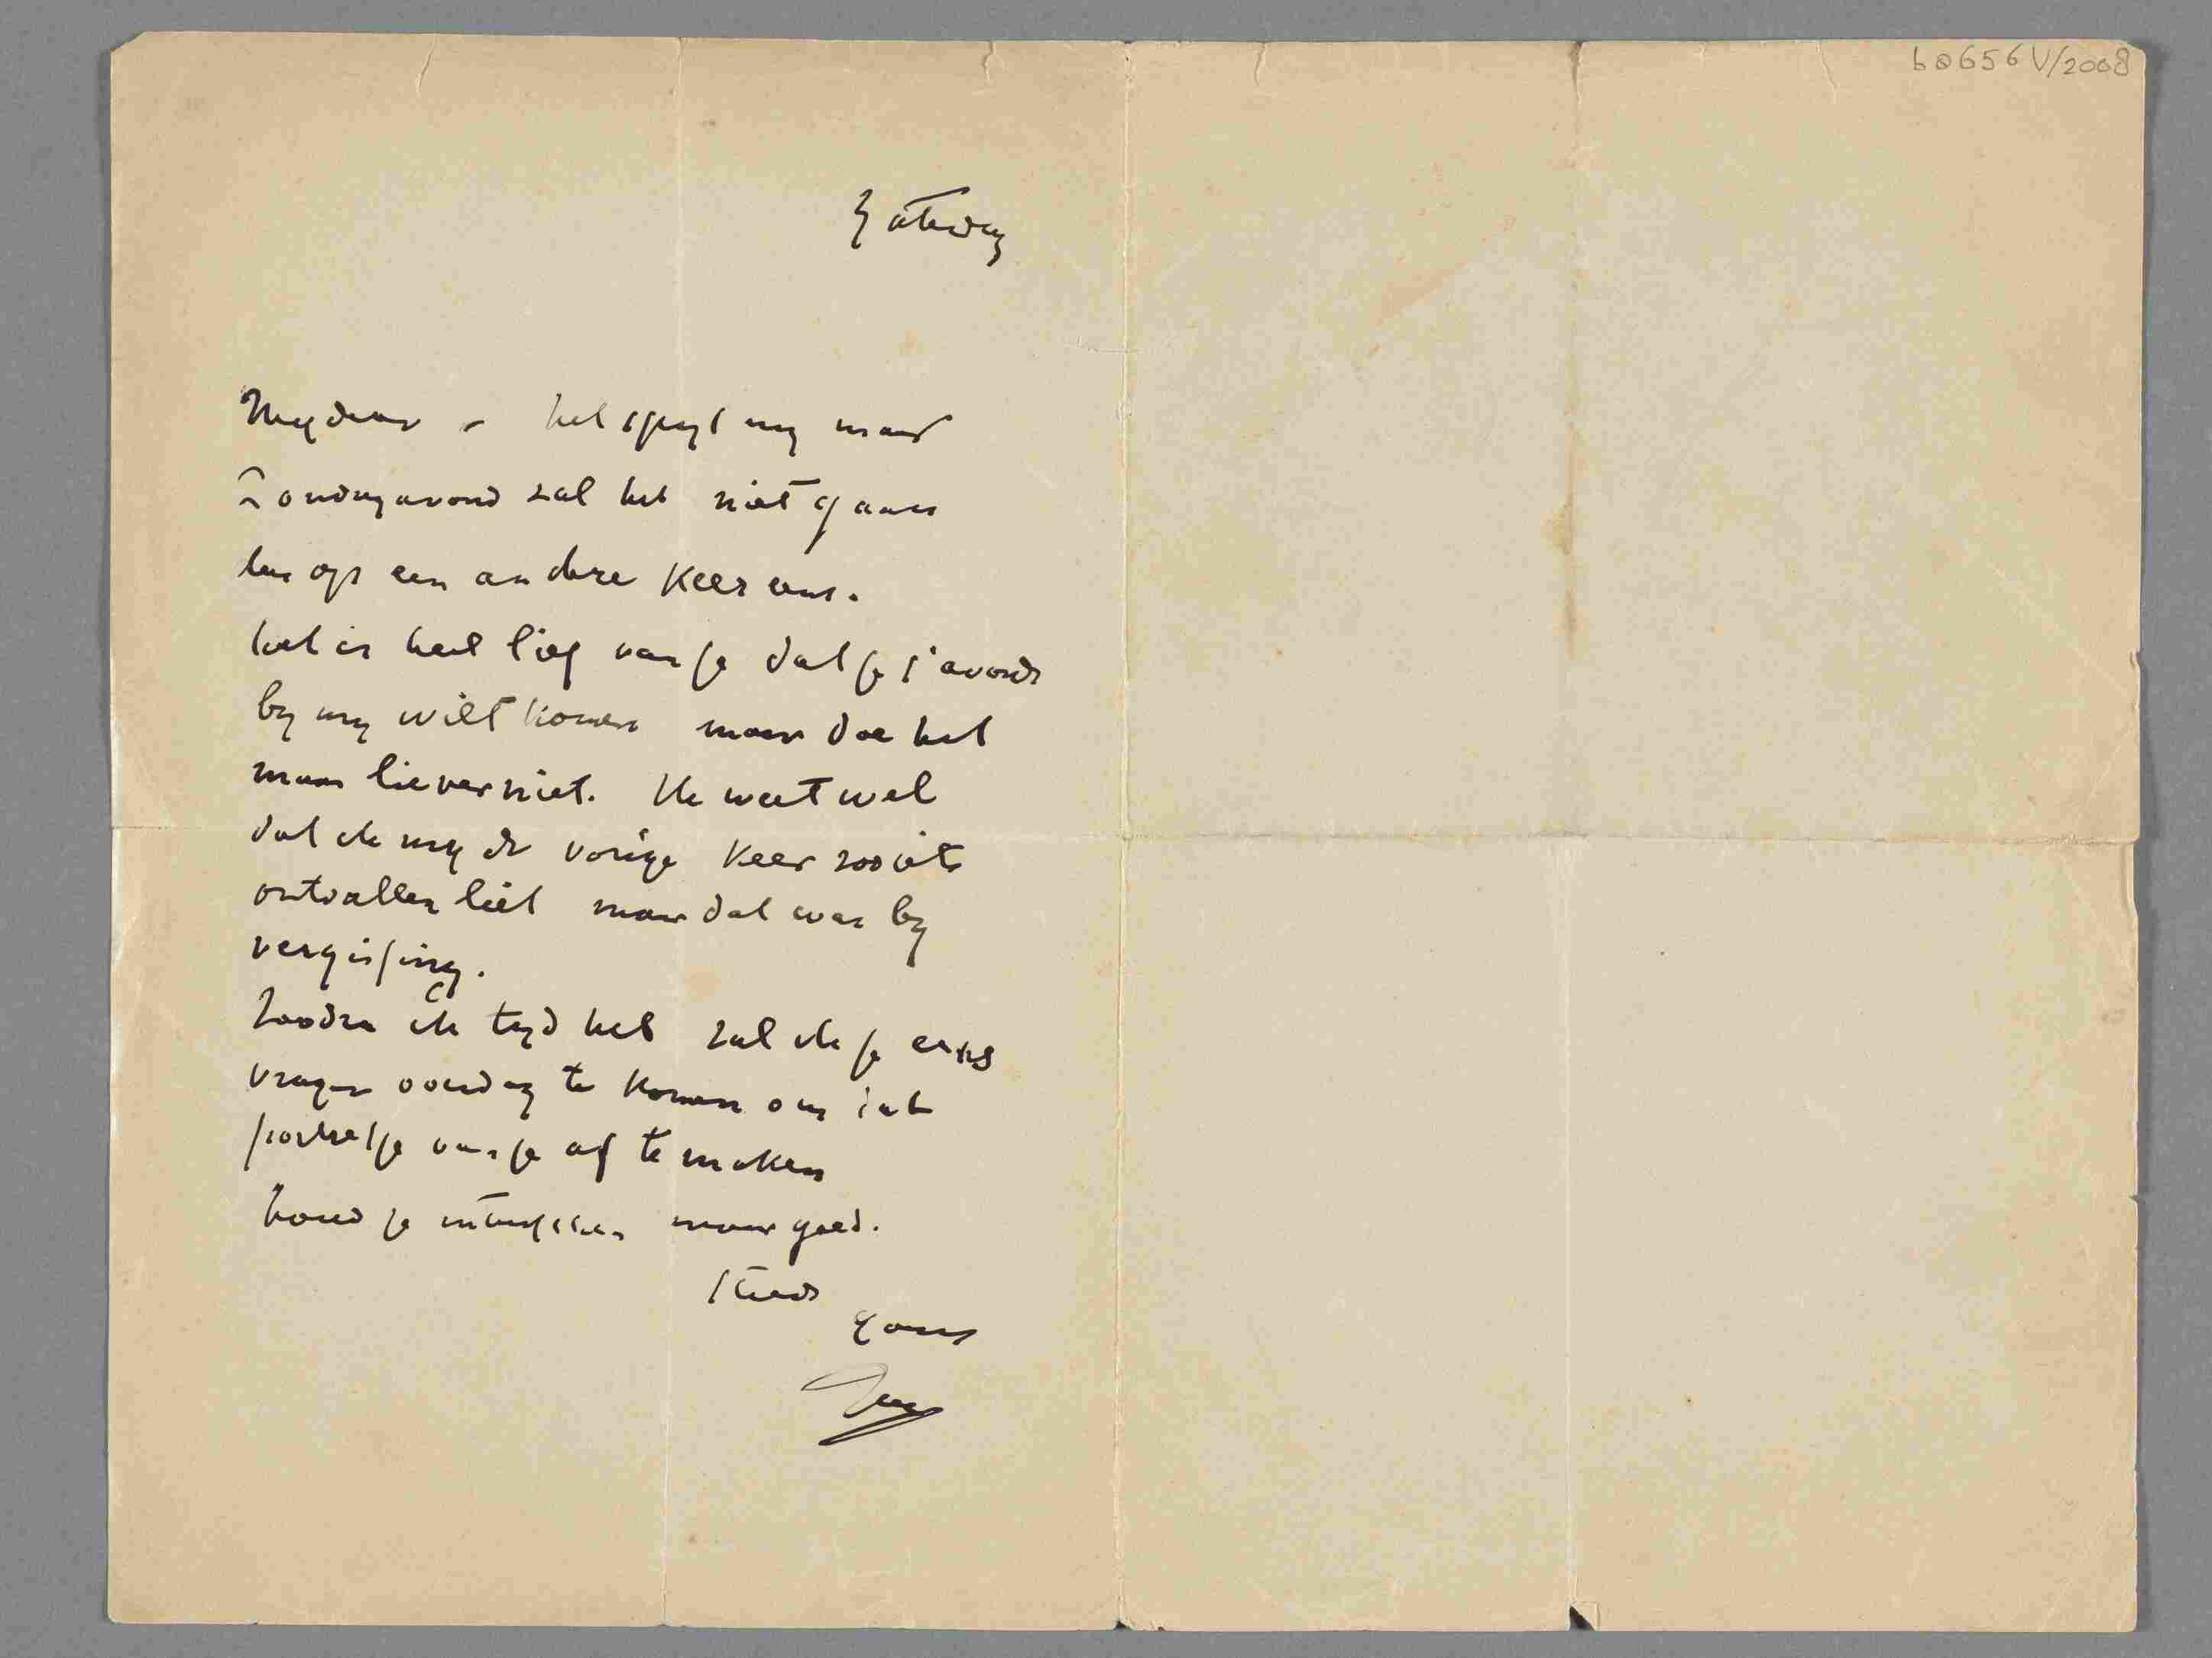 b8656 V/2008
Zaterdag
My dear - het spyt my maar
Zondagavond zal het niet gaan
dus op een andere keer eens.
het is heel lief van je dat je s'avonds
by my wilt komen maar doe het
maar liever niet. Ik weet wel
dat ik my de vorige keer zooiets
ontvallen liet maar dat was by
vergissing.
Zoodra ik tyd heb zal ik je eens
vragen overdag te komen om dat
portretje van je af te maken
houd je intusschen maar goed.
Steeds
yours